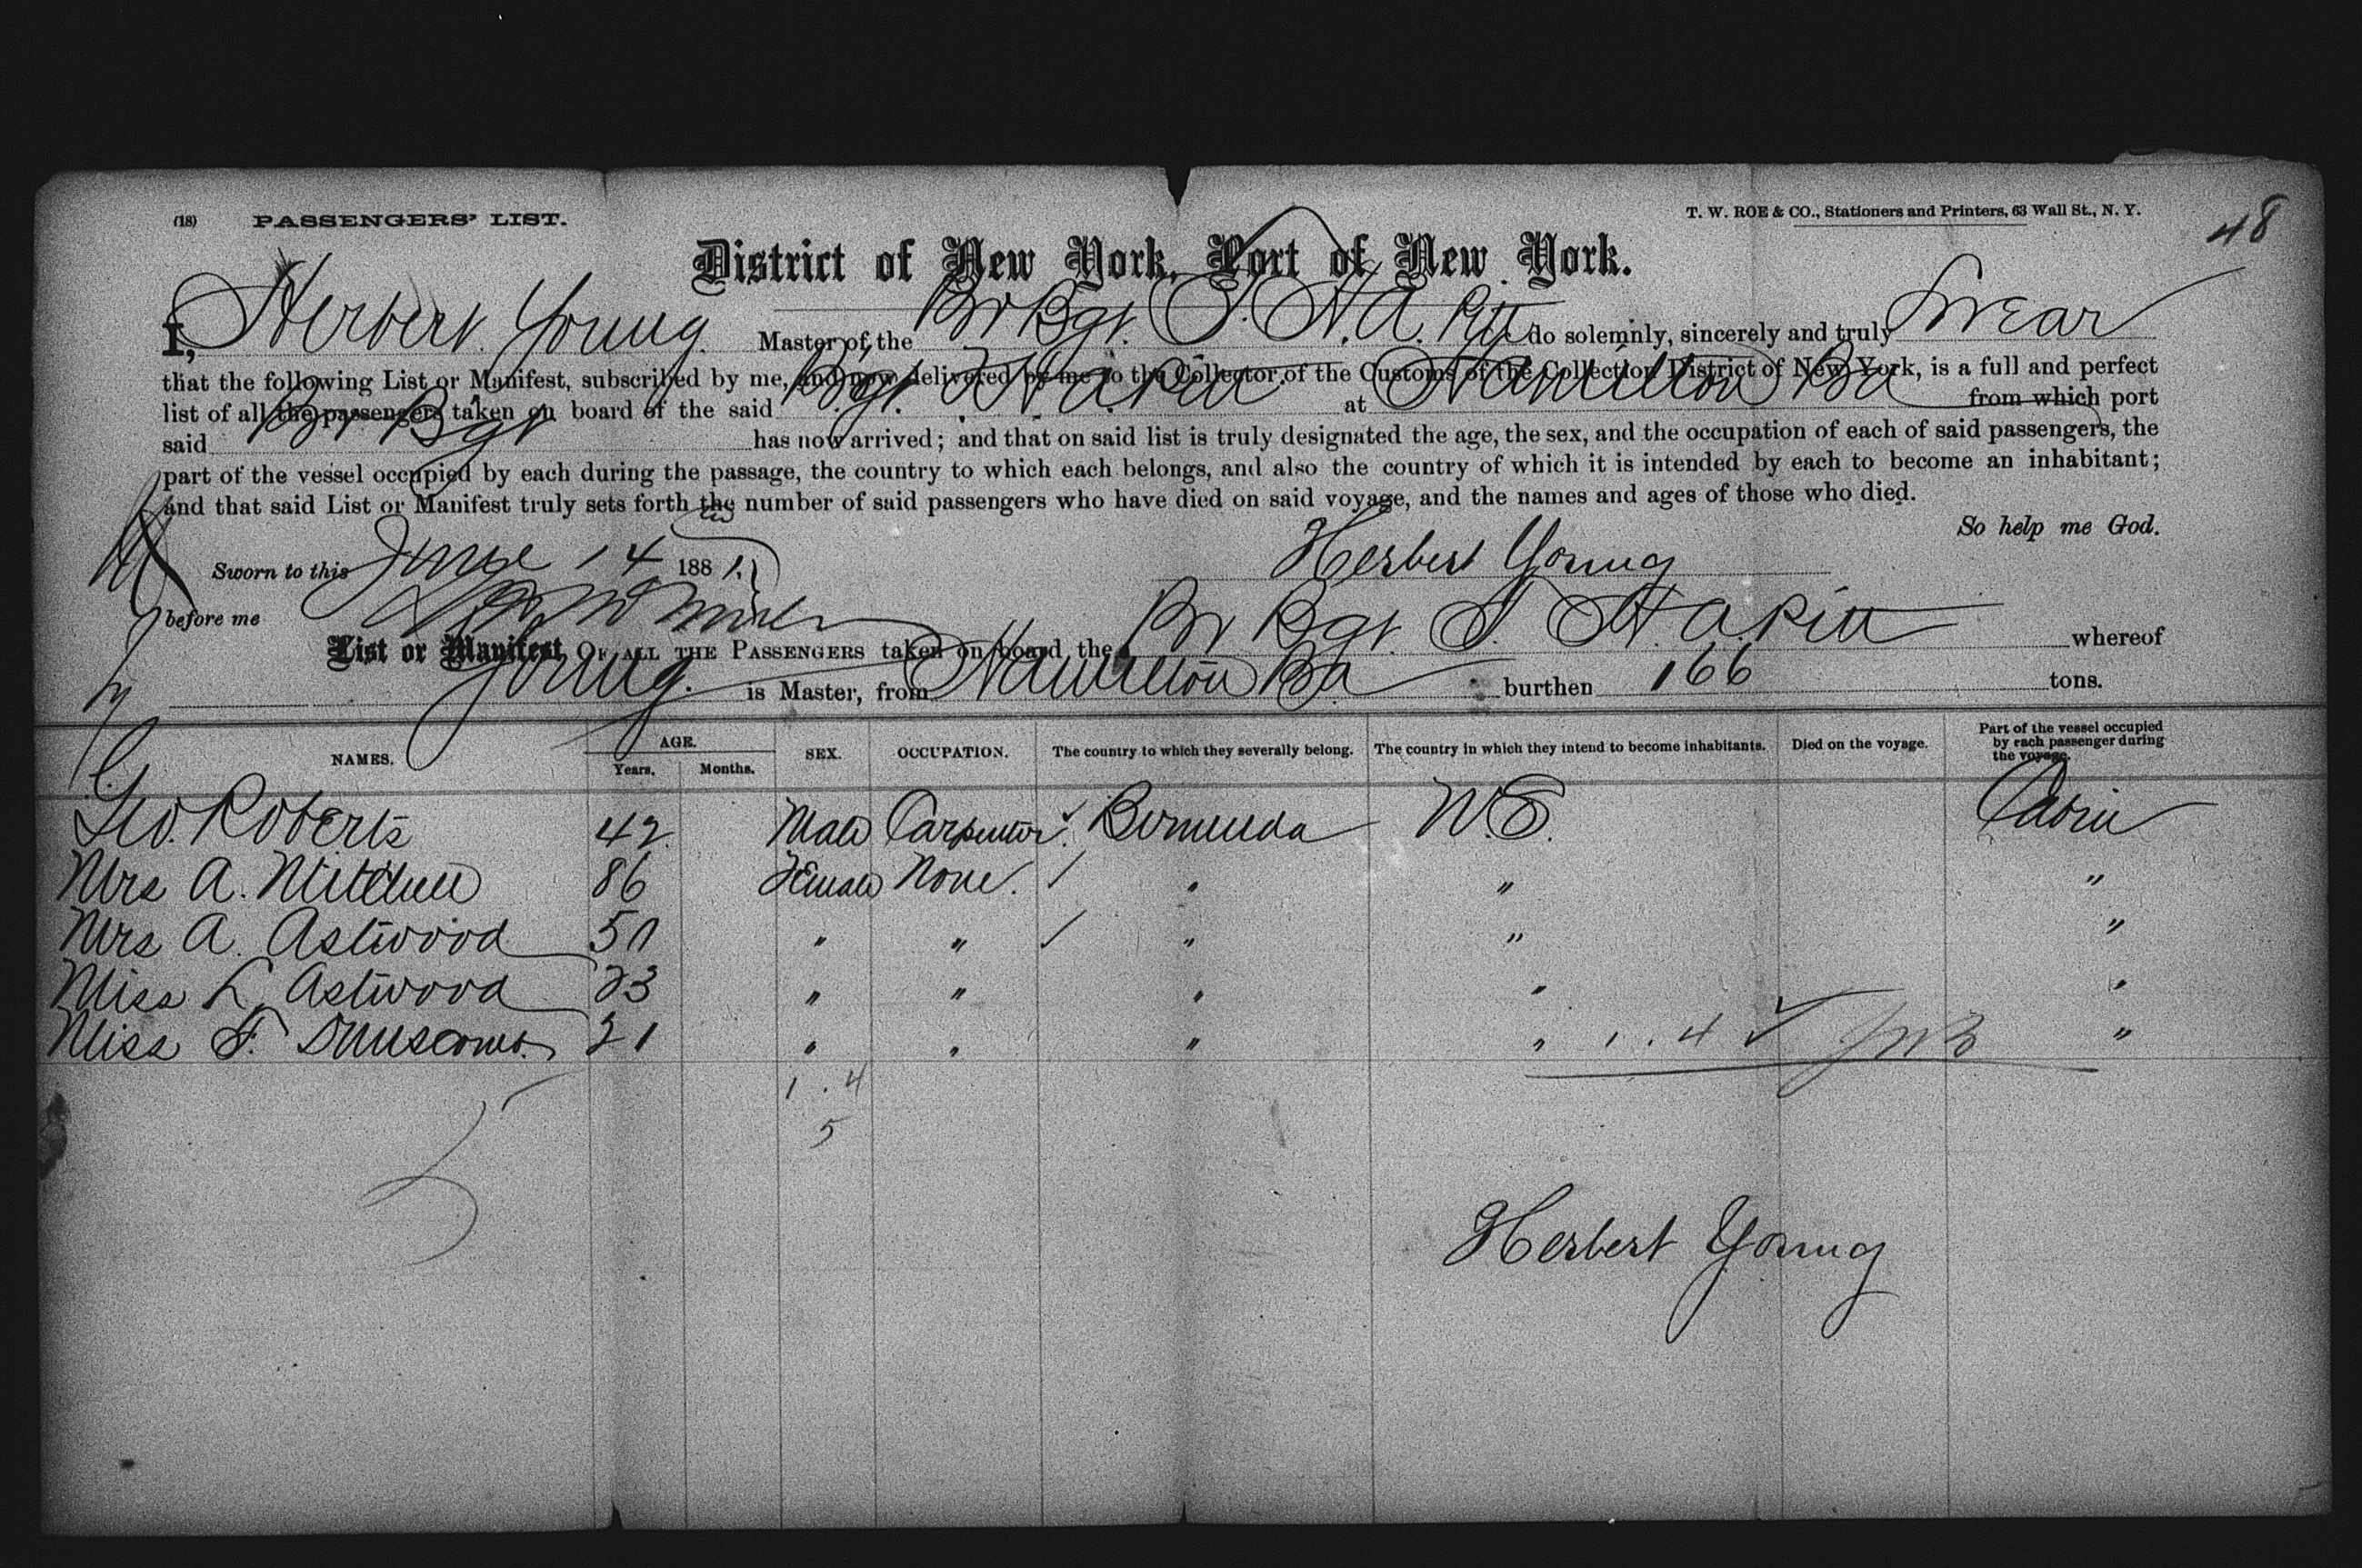 (18) PASSENGERS' LIST.
T. W. ROE & CO., Stationers and Printers, 63 Wall St., N. Y.
48
District of New York, Port of New York.
I, Herbert Young Master of the Br Bgt. T. H. A. Pitt do solemnly, sincerely and truly Swear
that the following List or Manifest, subscribed by me, and now delivered by me to the Collector of the Customs of the Collection District of New York, is a full and perfect
list of all the passengers taken on board of the said Bgt. T H a Pitt at Hamilton Ba from which port
said Br Bgt has now arrived; and that on said list is truly designated the age, the sex, and the occupation of each of said passengers, the
part of the vessel occupied by each during the passage, the country to which each belongs, and also the country of which it is intended by each to become an inhabitant;
and that said List or Manifest truly sets forth the number of said passengers who have died on said voyage, and the names and ages of those who died.
So help me God.
Sworn to this June 14 1881. Herbert Young
before me
List or Manifest OF ALL THE PASSENGERS taken on board the Br Bgt. T. H. a. Pitt whereof
Young. is Master, from Hamilton Ba burthen 166 tons.
NAMES. AGE. Years. Months. SEX. OCCUPATION. The country to which they severally belong. The country in which they intend to become inhabitants. Died on the voyage. Part of the vessel occupied by each passenger during the voyage.
Geo. Roberts 42 Male Carpenter. Bermuda U.S. Cabin
Mrs A. Mitchell 86 Female None. " " "
Mrs A. Astwood 50 " " " " "
Miss L. Astwood 23 " " " " "
Miss F. Dunscomb. 21 " " " " 1 . 4 "
1 . 4
5
Herbert Young